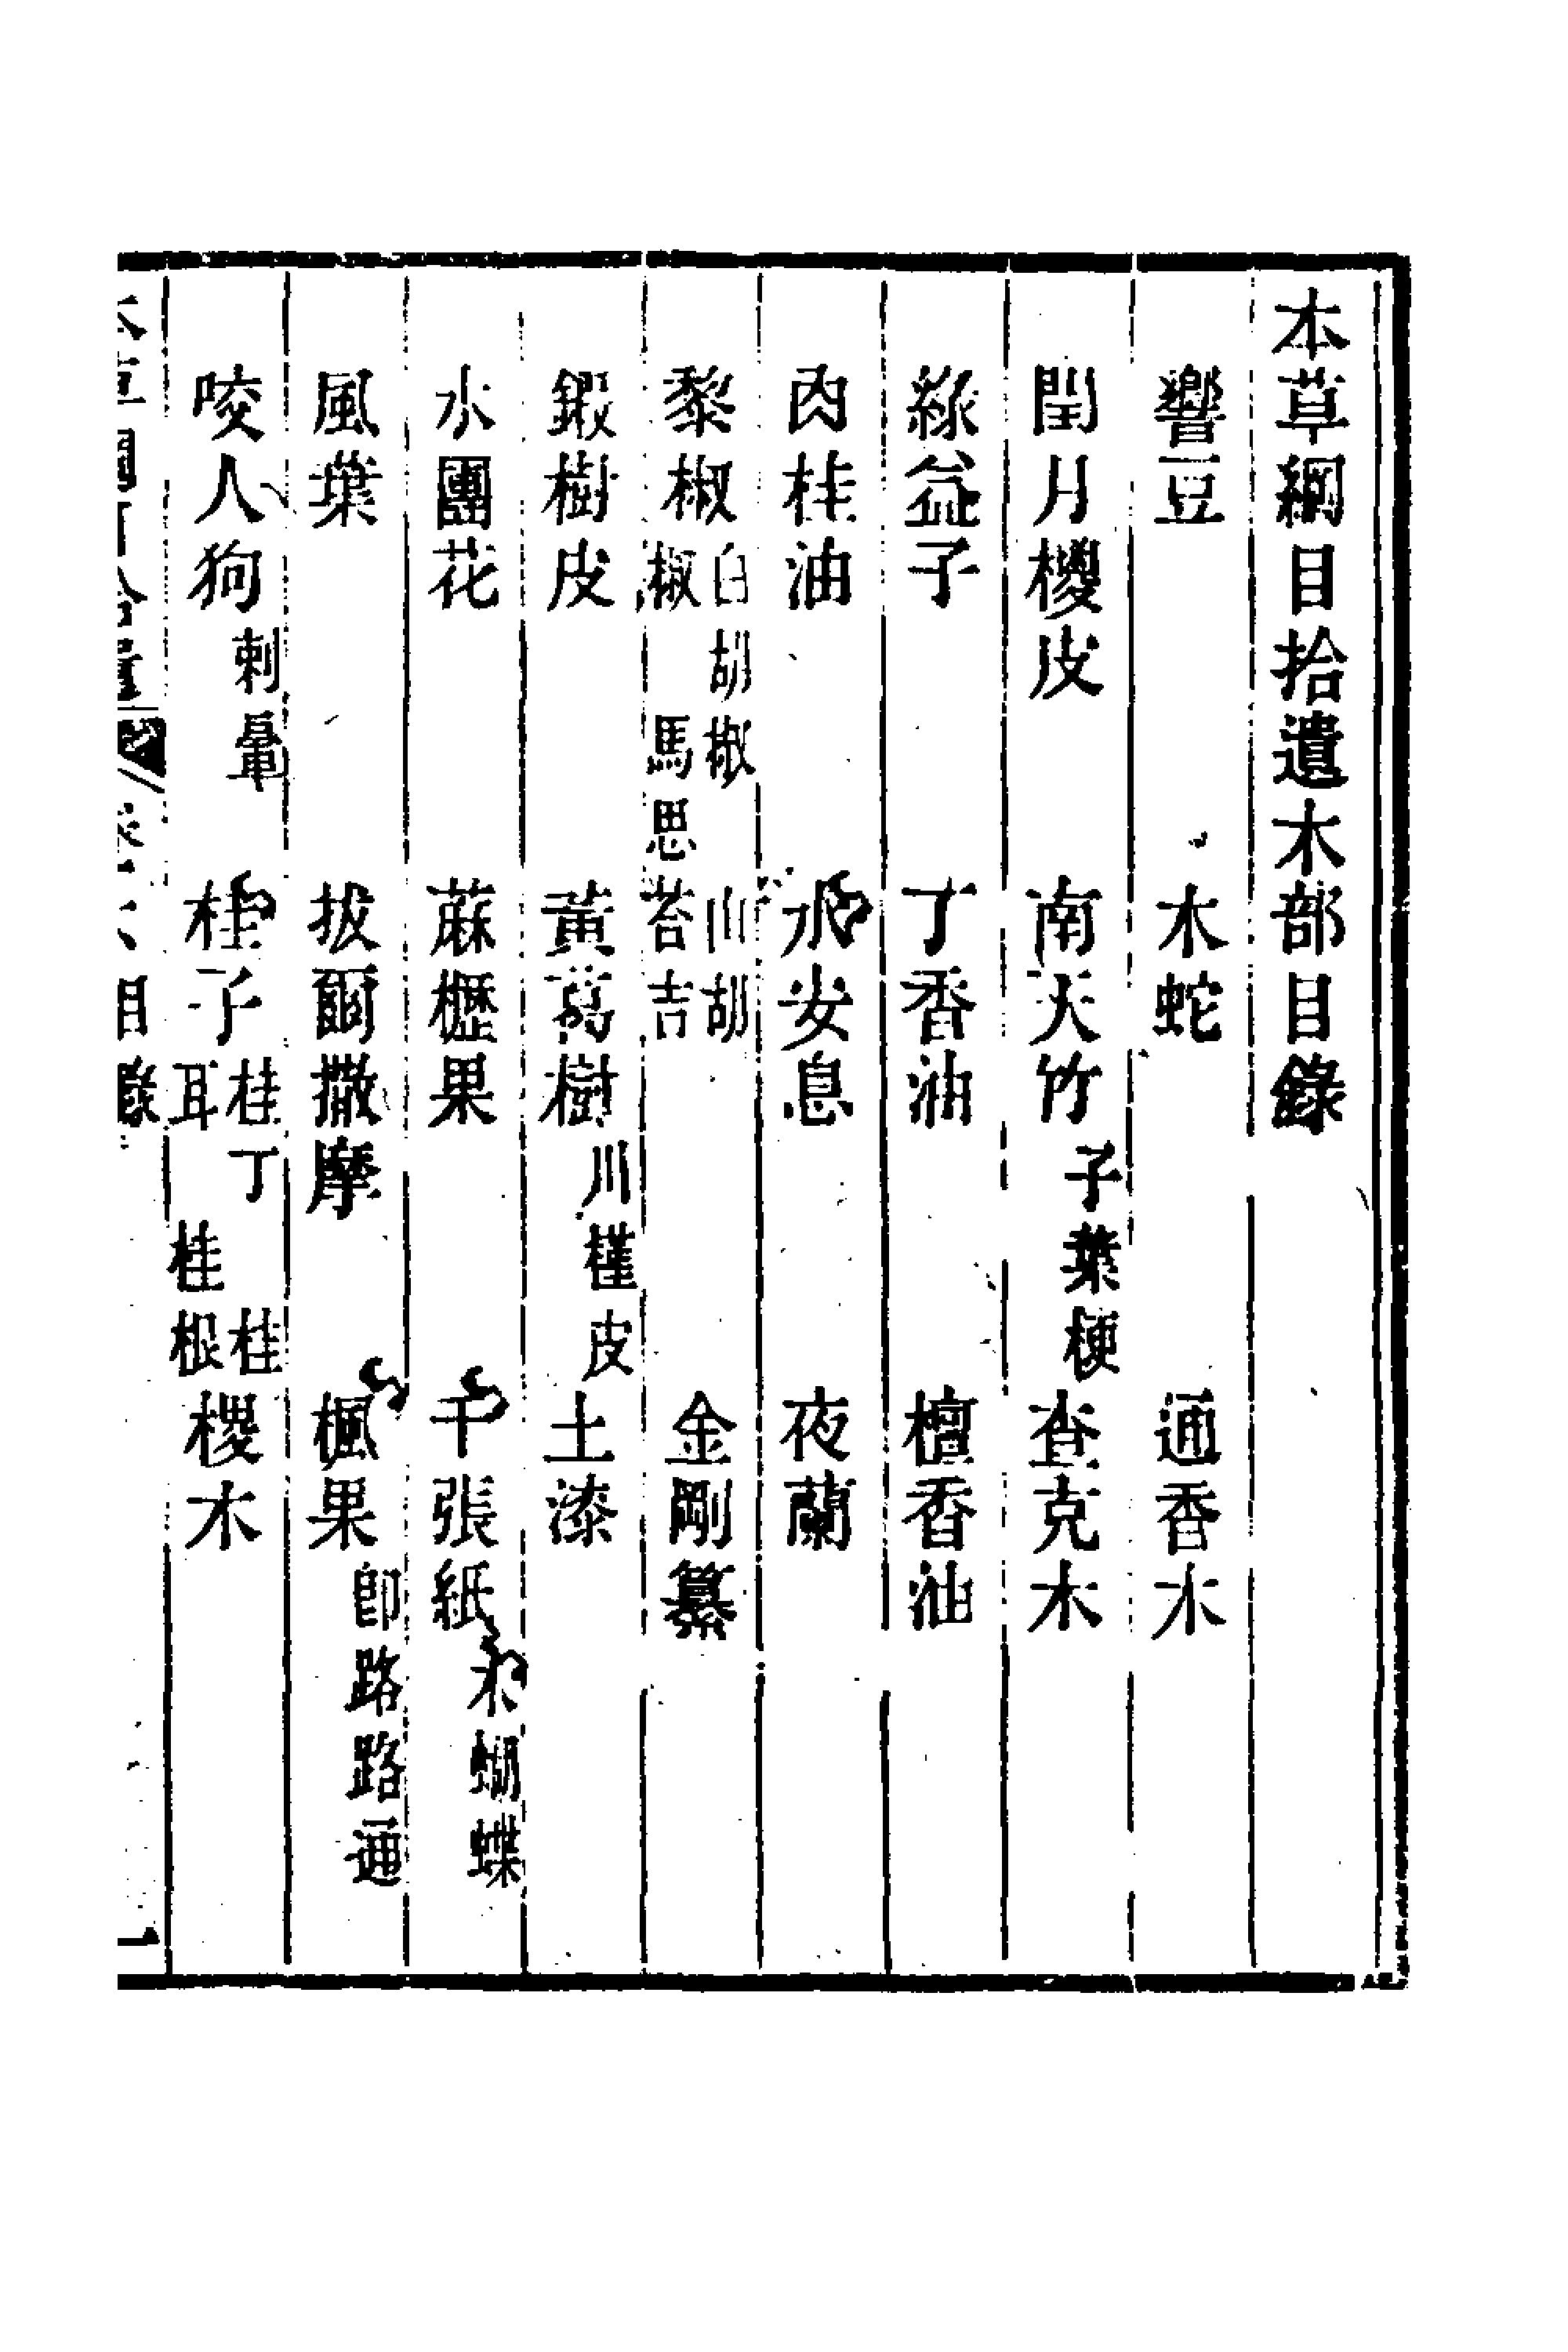 本草綱目拾遺木部目錄
響豆 木蛇 通香木
閏月椶皮 南天竹 子葉梗 查克木
綠益子 丁香油 檀香油
肉桂油 水安息 夜蘭
黎椒 白胡椒 山胡椒 馬思荅吉 金剛纂
鍛樹皮 黃葛樹 川槿皮 土漆
水團花 蔴櫪果 千張紙 木蝴蝶
風葉 拔爾撒摩 楓果 即路路通
咬人狗 刺暈 桂子 桂丁 桂耳 桂根 椶木
本草綱目拾遺 卷六 目錄 一